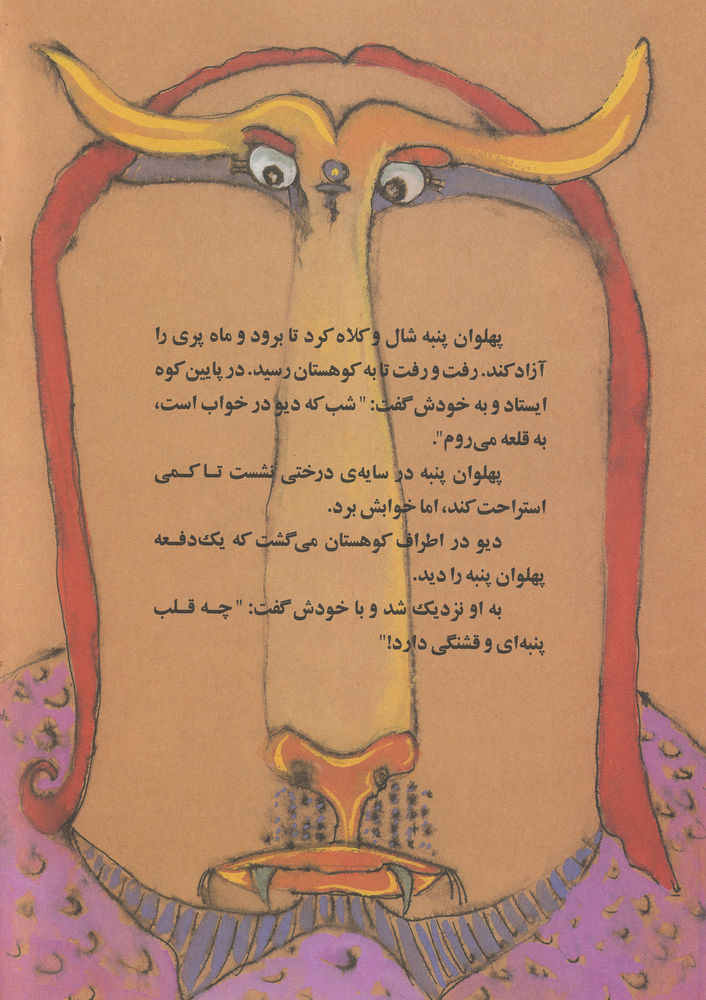 پهلوان پنبه شال و کلاه کرد تا برود و ماه پری را
آزاد کند. رفت و رفت تا به کوهستان رسید. در پایین کوه
ایستاد و به خودش گفت: "شب که دیو در خواب است،
به قلعه می‌روم".
پهلوان پنبه در سایه‌ی درختی نشست تـا کـمی
استراحت کند، اما خوابش برد.
دیو در اطراف کوهستان می‌گشت که یک‌دفـعه
پهلوان پنبه را دید.
به او نزدیک شد و با خودش گفت: "چـه قـلب
پنبه‌ای و قشنگی دارد!"